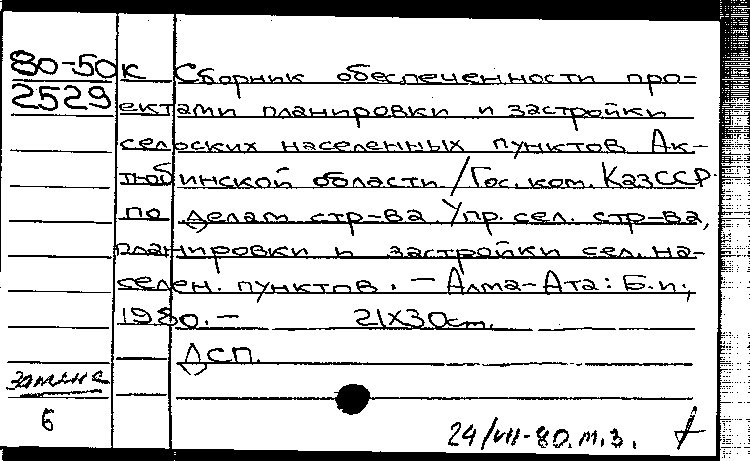 80-50 к Сборник обеспеченности про=
2529 ектами планировки и застройки
сельских населенных пунктов Ак-
тюбинской области / Гос. ком. КазССР
по делам стр-ва. Упр. сел. стр-ва,
планировки и застройки сел. на-
селен. пунктов. — Алма-Ата: Б.и.,
1980. — 21х30см.
ДСП.
Замена
6
24/VII-80. м.з.